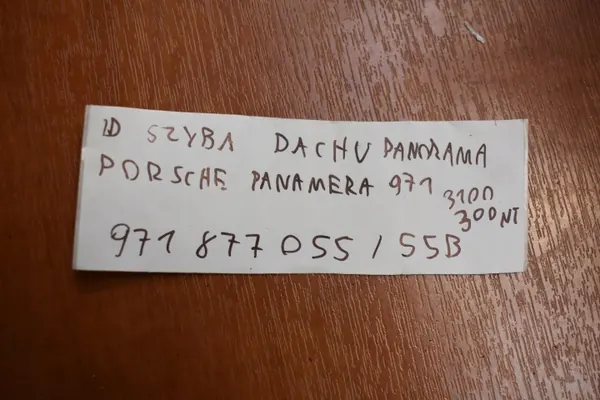 LD SZYBA DACHU PANORAMA
PORSCHE PANAMERA 971
3100
300NT
971 877 055 / 55B